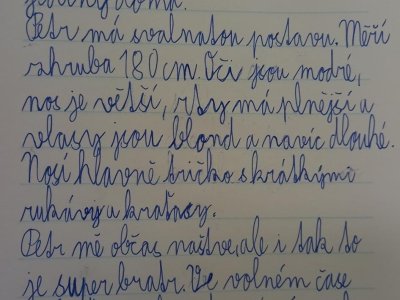 jediný doma.
Petr má svalnatou postavu. Měří
zhruba 180 cm. Oči jsou modré,
nos je větší, rty má plnější a
vlasy jsou blond a navíc dlouhé.
Nosí hlavně tričko s krátkými
rukávy a kraťasy.
Petr mě občas naštve, ale i tak to
je super bratr. Ve volném čase